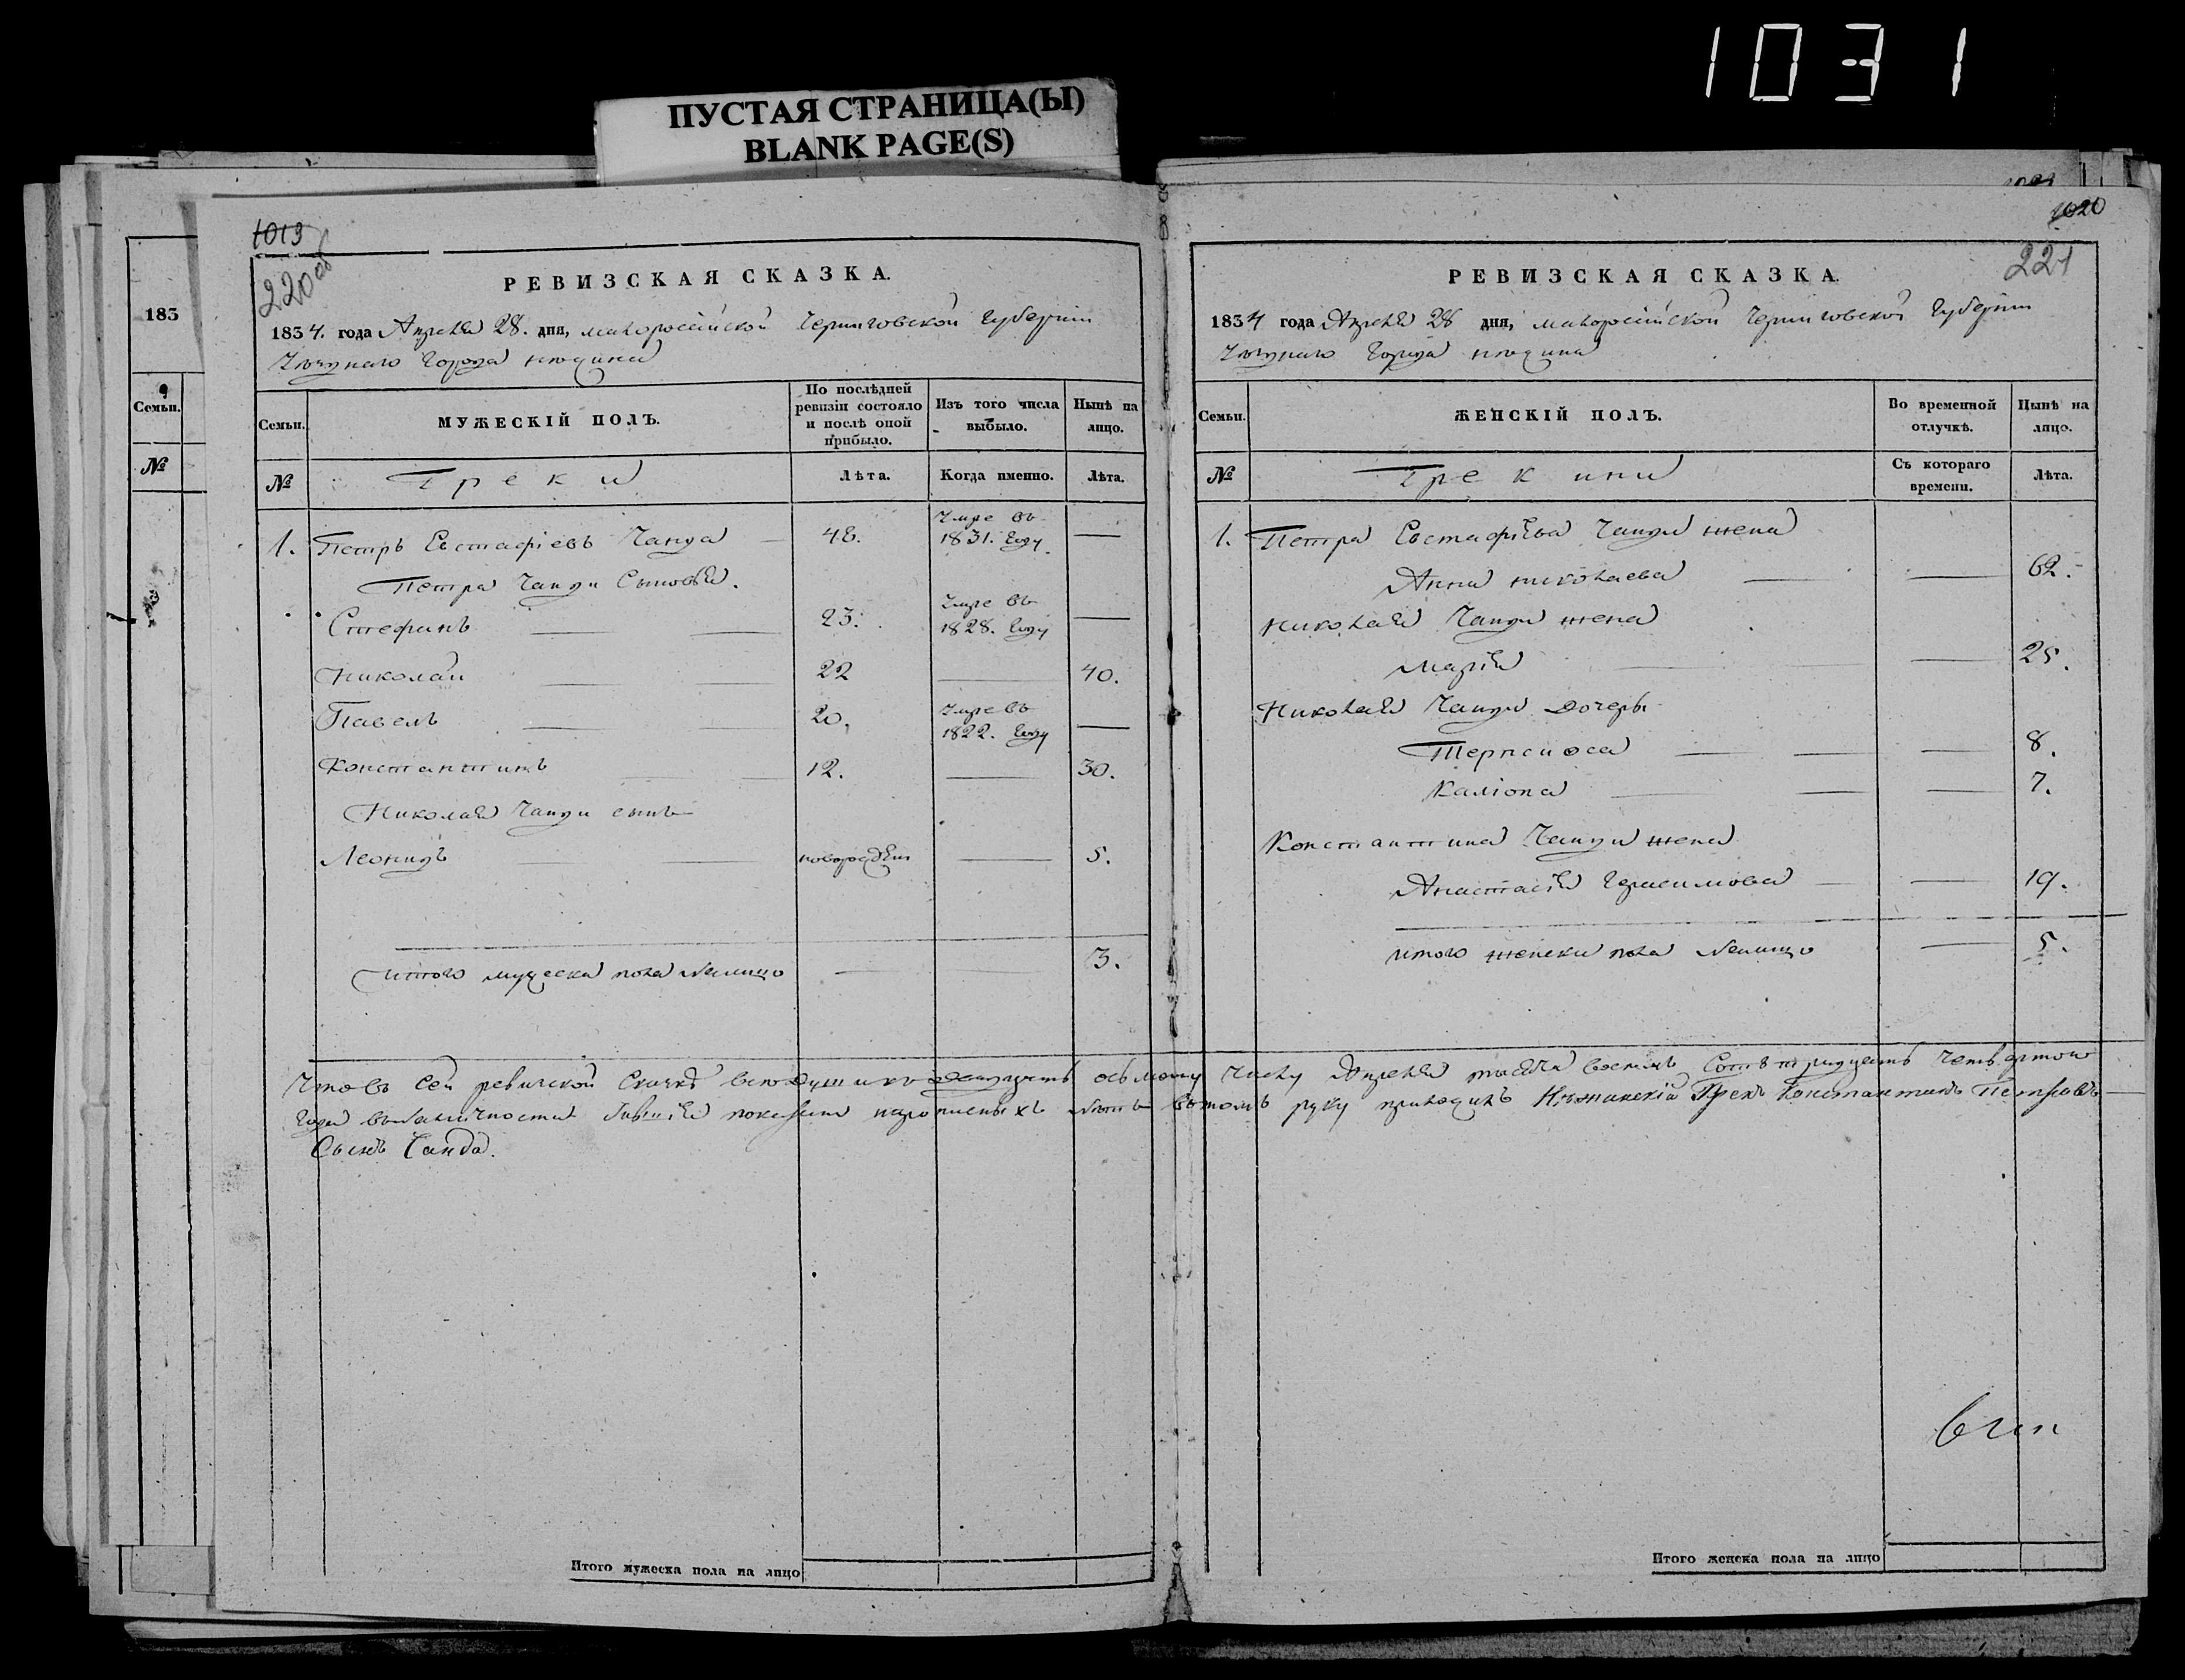 1031
ПУСТАЯ СТРАНИЦА(Ы)
BLANK PAGE(S)
183
Семьи.
№
1013
220 об
РЕВИЗСКАЯ СКАЗКА.
1834. года Апреля 28. дня, малороссійской Черниговской Губерніи
города нежина
Семьи.
МУЖЕСКІЙ ПОЛЪ.
По послѣдней ревизіи состояло и послѣ оной прибыло.
Изъ того числа выбыло.
Нынѣ на лицо.
№
Греки
Лѣта.
Когда именно.
Лѣта.
1. Петръ Евстафіевъ Чанда 48. Умре въ 1831. году
Петра Чанди Сыновья.
Стефанъ 23. Умре въ 1828. году
Николай 22 40.
Павелъ 20. Умре въ 1822. году
Константинъ 12. 30.
Николая Чанди сынъ
Леонидъ 5.
итого мужеска пола налицо 3.
1020
221
РЕВИЗСКАЯ СКАЗКА.
1834 года Апреля 28 дня, малороссійской Черниговской Губерніи
города нежина
Семьи.
ЖЕНСКІЙ ПОЛЪ.
Во временной отлучкѣ.
Нынѣ на лицо.
№
Грекини
Съ котораго времени.
Лѣта.
1. Петра Евстафіева Чанди жена
Анна николаева 62.
Николая Чанди жена
Марія 25.
Николая Чанди дочеры
Терпсиоса 8.
Каліопа 7.
Константина Чанди жена
Анастасія Герасимова 19.
итого женска пола налицо 5.
Что въ Сей ревизской Сказкѣ осьмому числу Апреля тысяча восемь Сотъ тридцать четвертого
года руку приложилъ Нѣжинскій Грекъ Константинъ Петровъ
Сынъ Чанда.
Итого мужеска пола на лицо
Итого женска пола на лицо